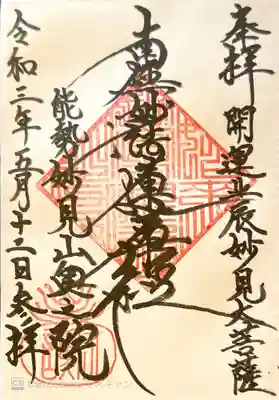 奉拝
開運北辰妙見大菩薩
南無妙法蓮華経
能勢妙見山奥之院
令和三年五月十二日参拝